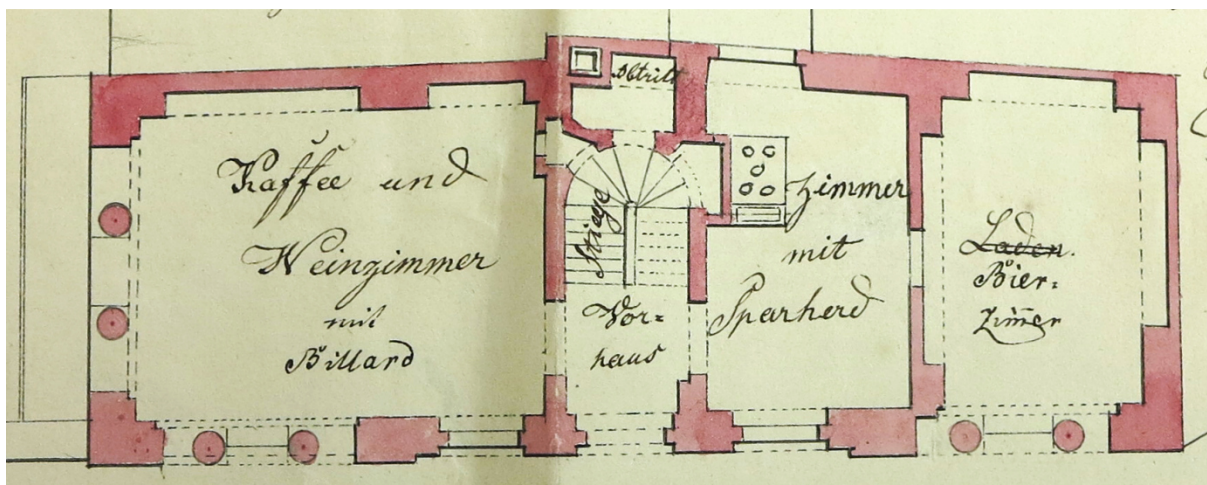 Kaffee und
Weinzimmer
mit
Billard
Abtritt
Stiege
Vor=
haus
Zimmer
mit
Sparherd
Laden.
Bier=
Zim̅er